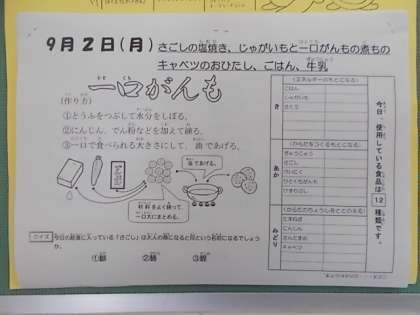 9月2日(月) さごしの塩焼き、じゃがいもと一口がんもの煮もの
キャベツのおひたし、ごはん、牛乳
一口がんも
(作り方)
①とうふをつぶして水分をしぼる。
②にんじん、でん粉などを加えて練る。
③一口で食べられる大きさにして、油であげる。
油であげる。
材料をよく練って、
一口大にまとめる。
クイズ 今日の給食に入っている「さごし」は大人の魚になると何という名前になるでしょう
か。
今日、使用している食品は12種類です。
き
(エネルギーのもとになる)
ごはん
じゃがいも
さとう
あか
(からだをつくるもとになる)
ぎゅうにゅう
さごし
ひとくちがんも
みどり
(からだのちょうしをととのえる)
にんじん
キャベツ